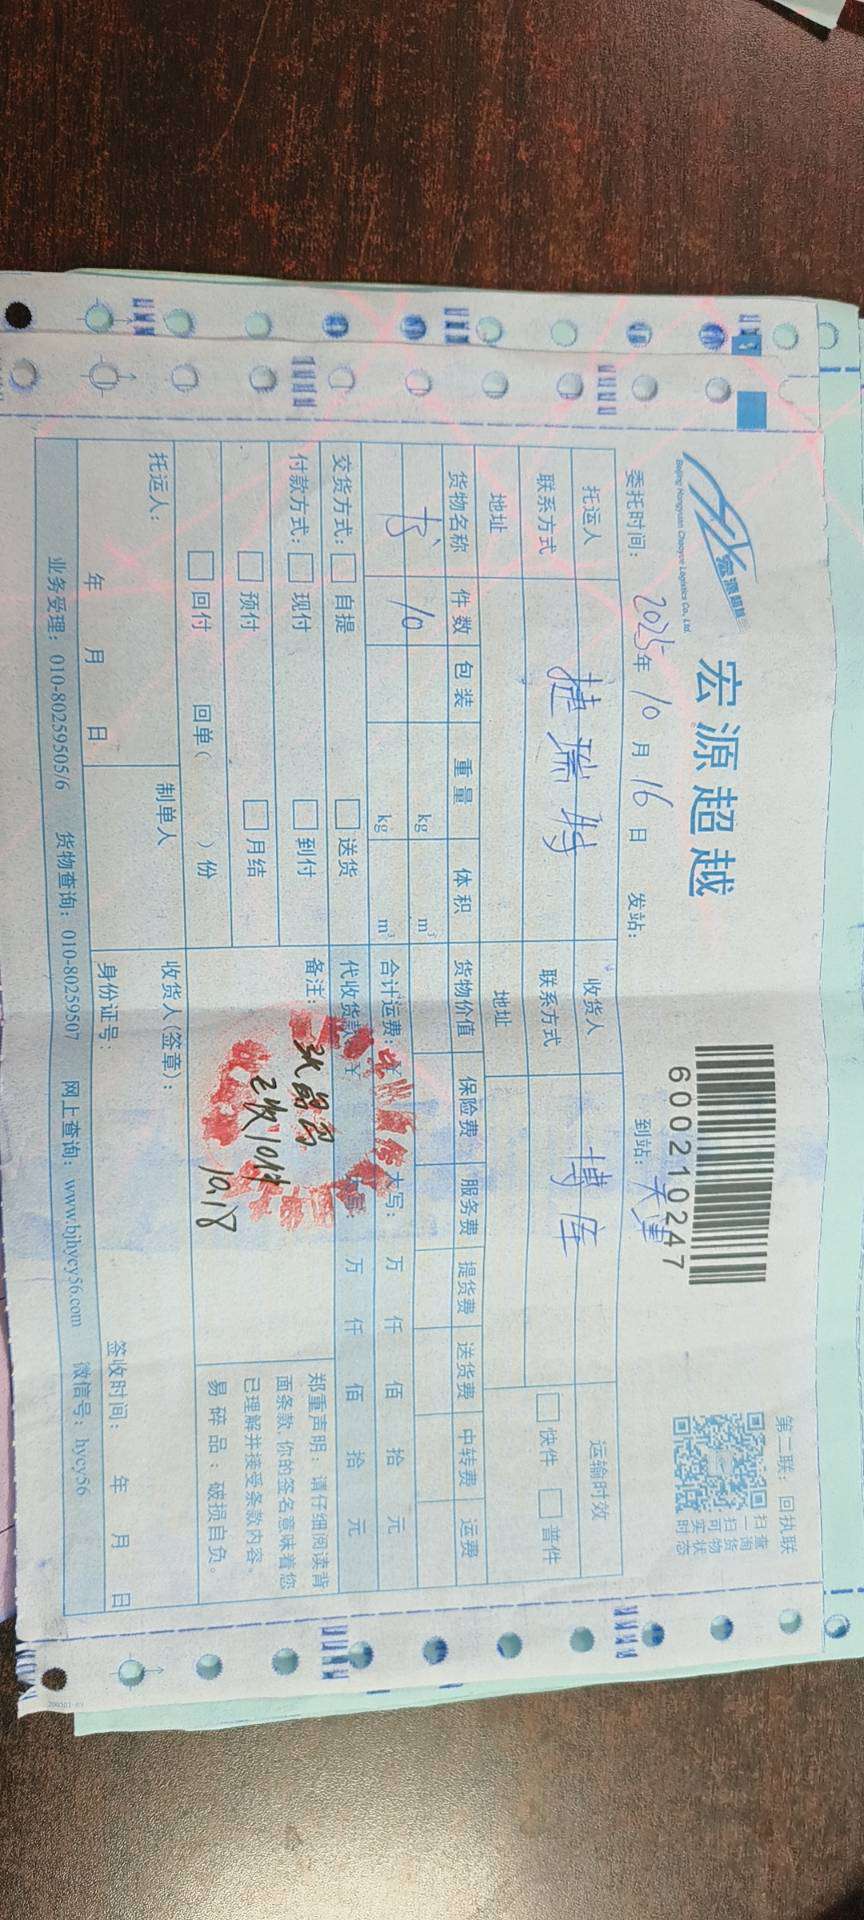 第二联：回执联
宏源超越
宏源超越
Beijing Hongyuan Chaoyue Logistics Co., Ltd.
600210247
扫一扫可实时
查询货物状态
委托时间：2025年10月16日 发站： 到站：天津
托运人 捷瑞特 收货人 博连 运输时效
联系方式 联系方式 快件 普件
地址 地址
货物名称 件数 包装 重量 体积 货物价值 保险费 服务费 提货费 送货费 中转费 运费
10 kg m³
kg m³ 合计运费：¥ 大写： 万 仟 佰 拾 元
交货方式： 自提 送货 代收货款：¥ 大写： 万 仟 佰 拾 元
付款方式： 现付 到付 备注：
预付 月结
回付 回单（ ）份
已收10件
10.18
郑重声明：请仔细阅读背
面条款，你的签名意味着您
已理解并接受条款内容。
易碎品：破损自负。
托运人： 制单人 收货人(签章)：
年 月 日 身份证号： 签收时间： 年 月 日
业务受理：010-80259505/6 货物查询：010-80259507 网上查询：www.bjhycy56.com 微信号：hycy56